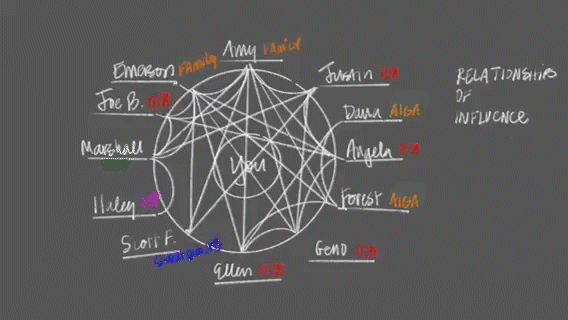 Amy FAMILY
Emerson FAMILY
Justin
Joe B.
Dana AIGA
Marshall
Angela
You
Haley
Forest AIGA
Scott F.
Geno
Ellen
RELATIONSHIPS
OF
INFLUENCE